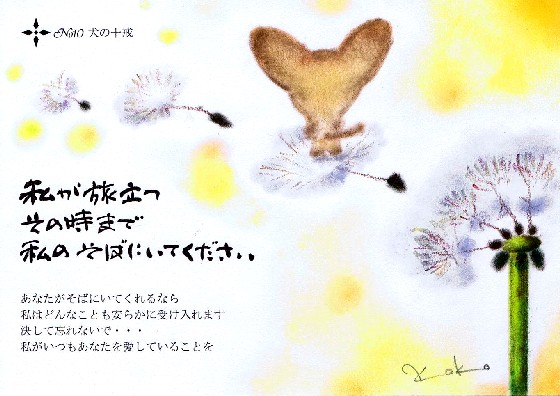 No10 犬の十戒
私が旅立つ
その時まで
私のそばにいてください。
あなたがそばにいてくれるなら
私はどんなことも安らかに受け入れます
決して忘れないで・・・
私がいつもあなたを愛していることを
Koko